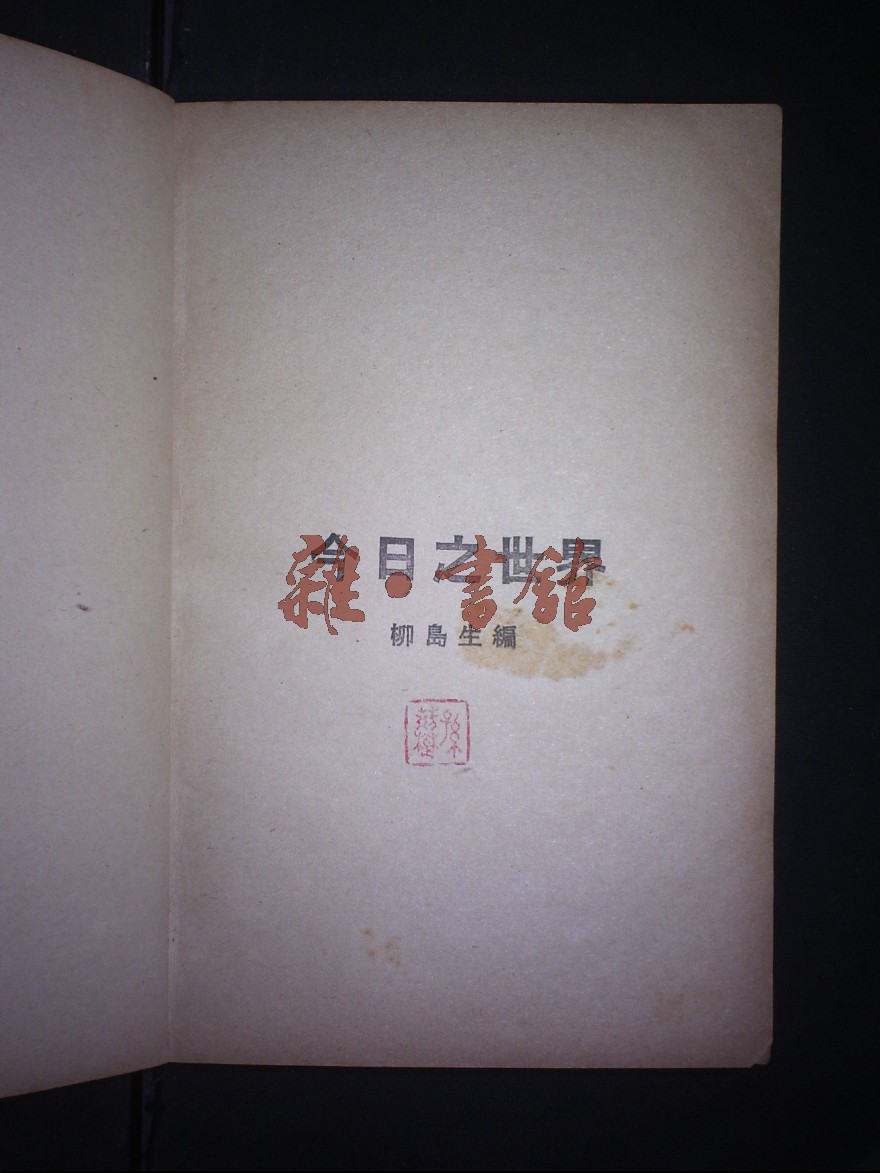 今日之世界
雜·書館
柳島生編